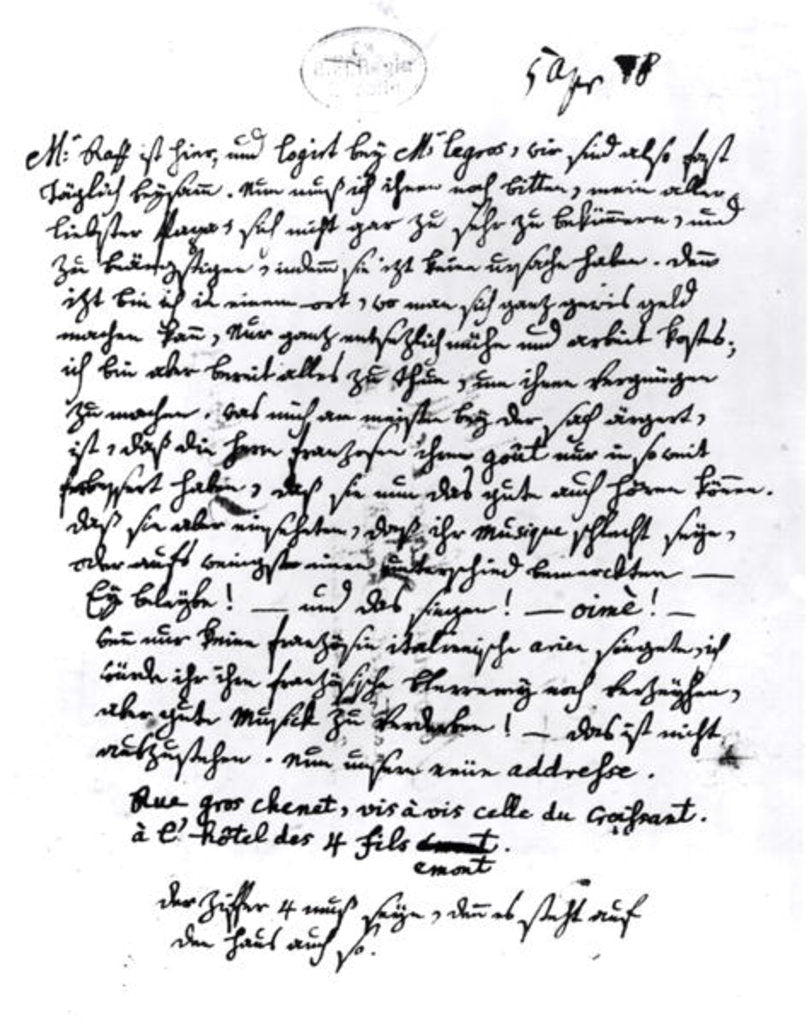 5 Apr 78
Mr: Raff ist hier, und logirt bey Mr legros, wir sind also fast
täglich beysamm. Nun muß ich ihnen noch bitten, mein aller-
liebster Papa, sich nicht gar zu sehr zu bekümmern, und
zu beängstigen, indemm sie izt keine ursache haben. denn
izt bin ich in einem ort, wo man sich ganz gewis geld
machen kann, Nur ganz entsetzlich mühe und arbeit kostet;
ich bin aber bereit alles zu thun, um ihnen vergnügen
zu machen. was mich am meisten bey der sach ärgert,
ist, daß die herrn franzosen ihren goût nur in soweit
verbessert haben, daß sie nun das gute auch hören können.
daß sie aber einseheten, daß ihr Musique schlecht seye,
oder aufs wenigste einen unterschied bemerckten —
Ey beleybe! — und das singen! — oimè! —
wenn nur keine französin italienische arien singete, ich
würde ihr ihre französische Plererey noch verzeyhen,
aber gute Musick zu verderben! — das ist nicht
auszustehen. Nun unsere neüe addresse.
Rue gros chenet, vis à vis celle du Croissant.
à l'hôtel des 4 fils
emont
der Ziffer 4 muß seyn, denn es steht auf
den haus auch so.